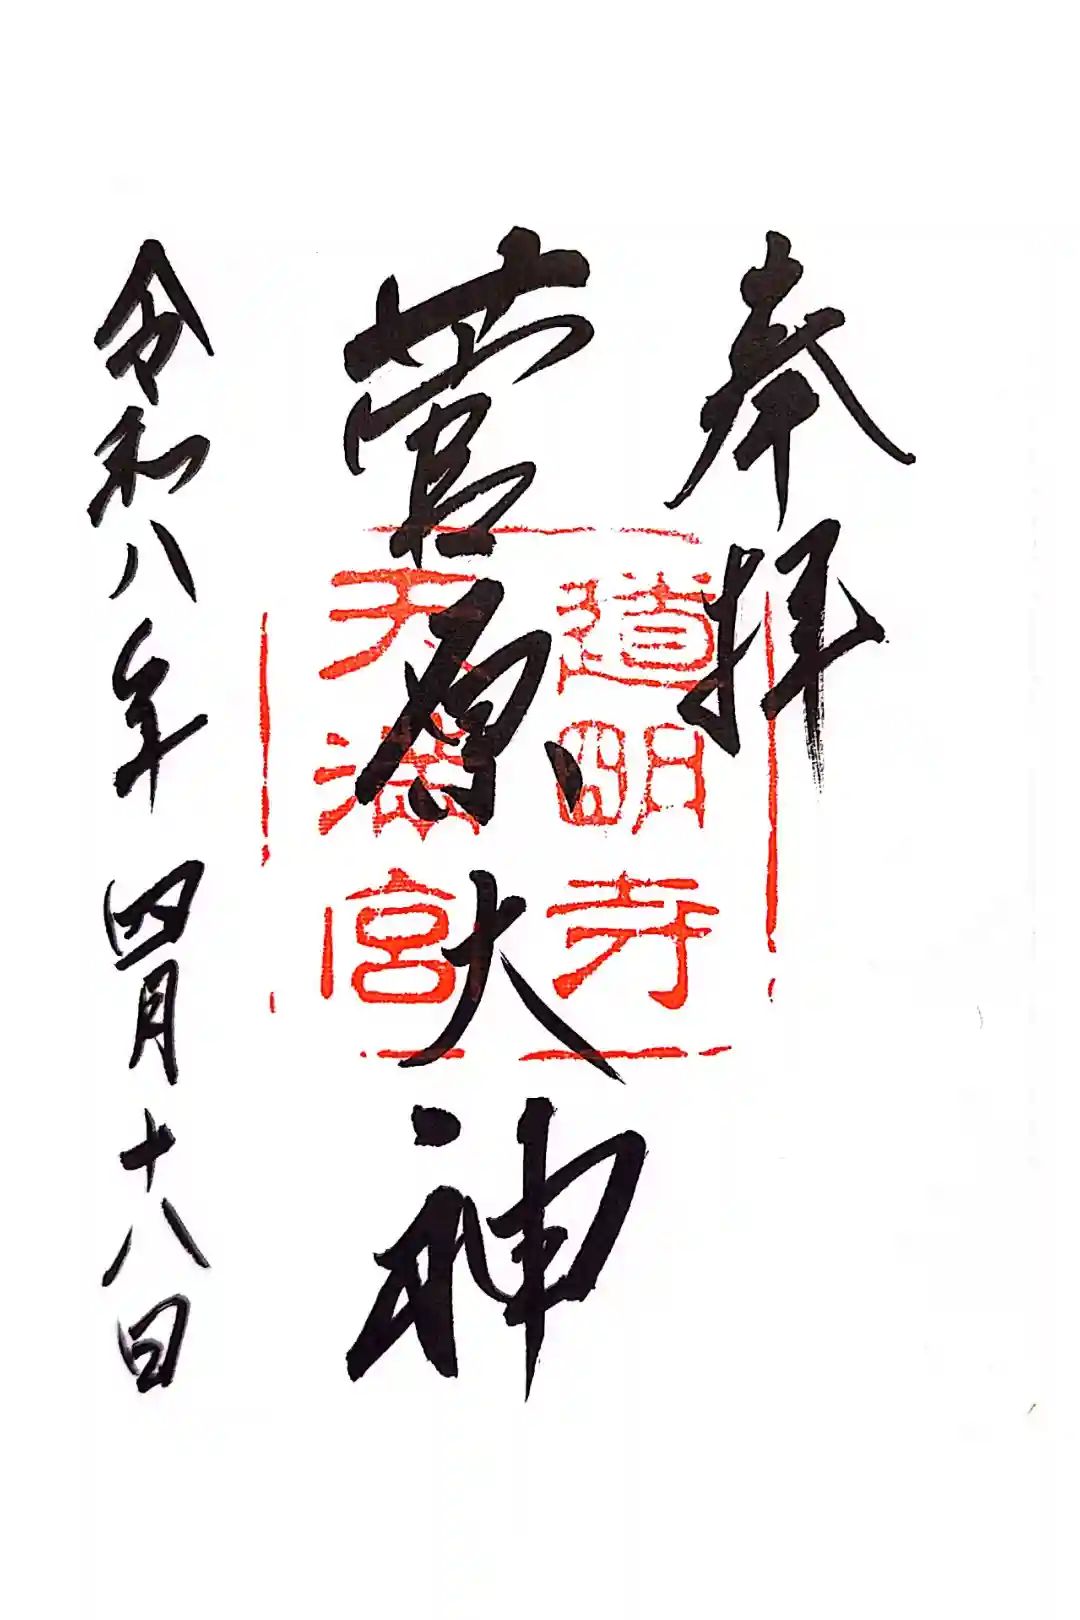 奉拝
道明寺
天満宮
菅原大神
令和八年四月十八日